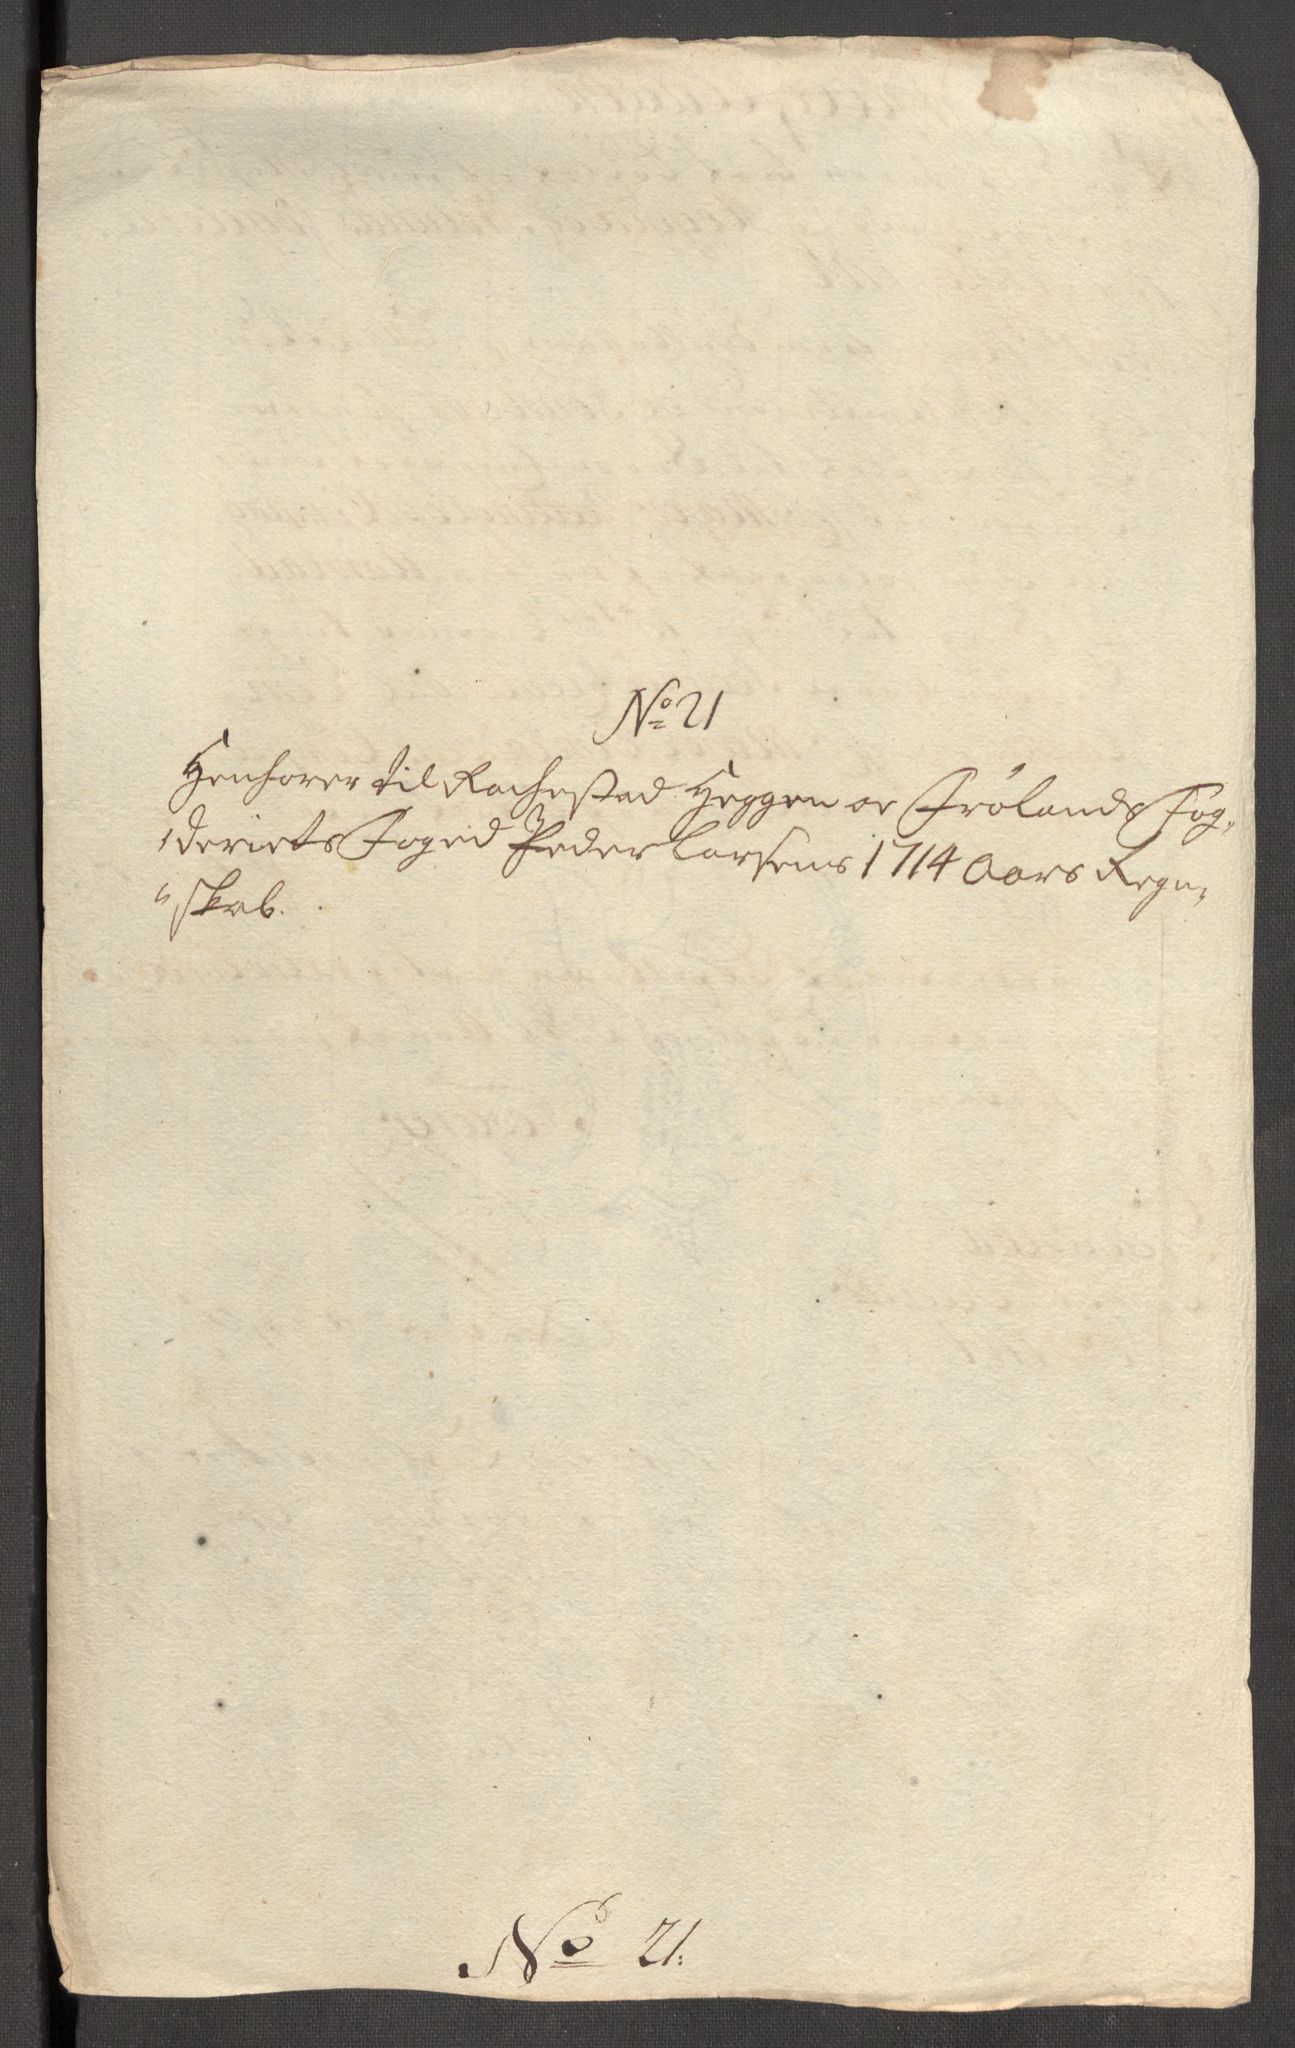 No 21
Henhører til Rachestad Heggen oc Frølands Fog,
deriets Foged Peder Larsens 1714 Aars Regn,
"skab.
No 21.